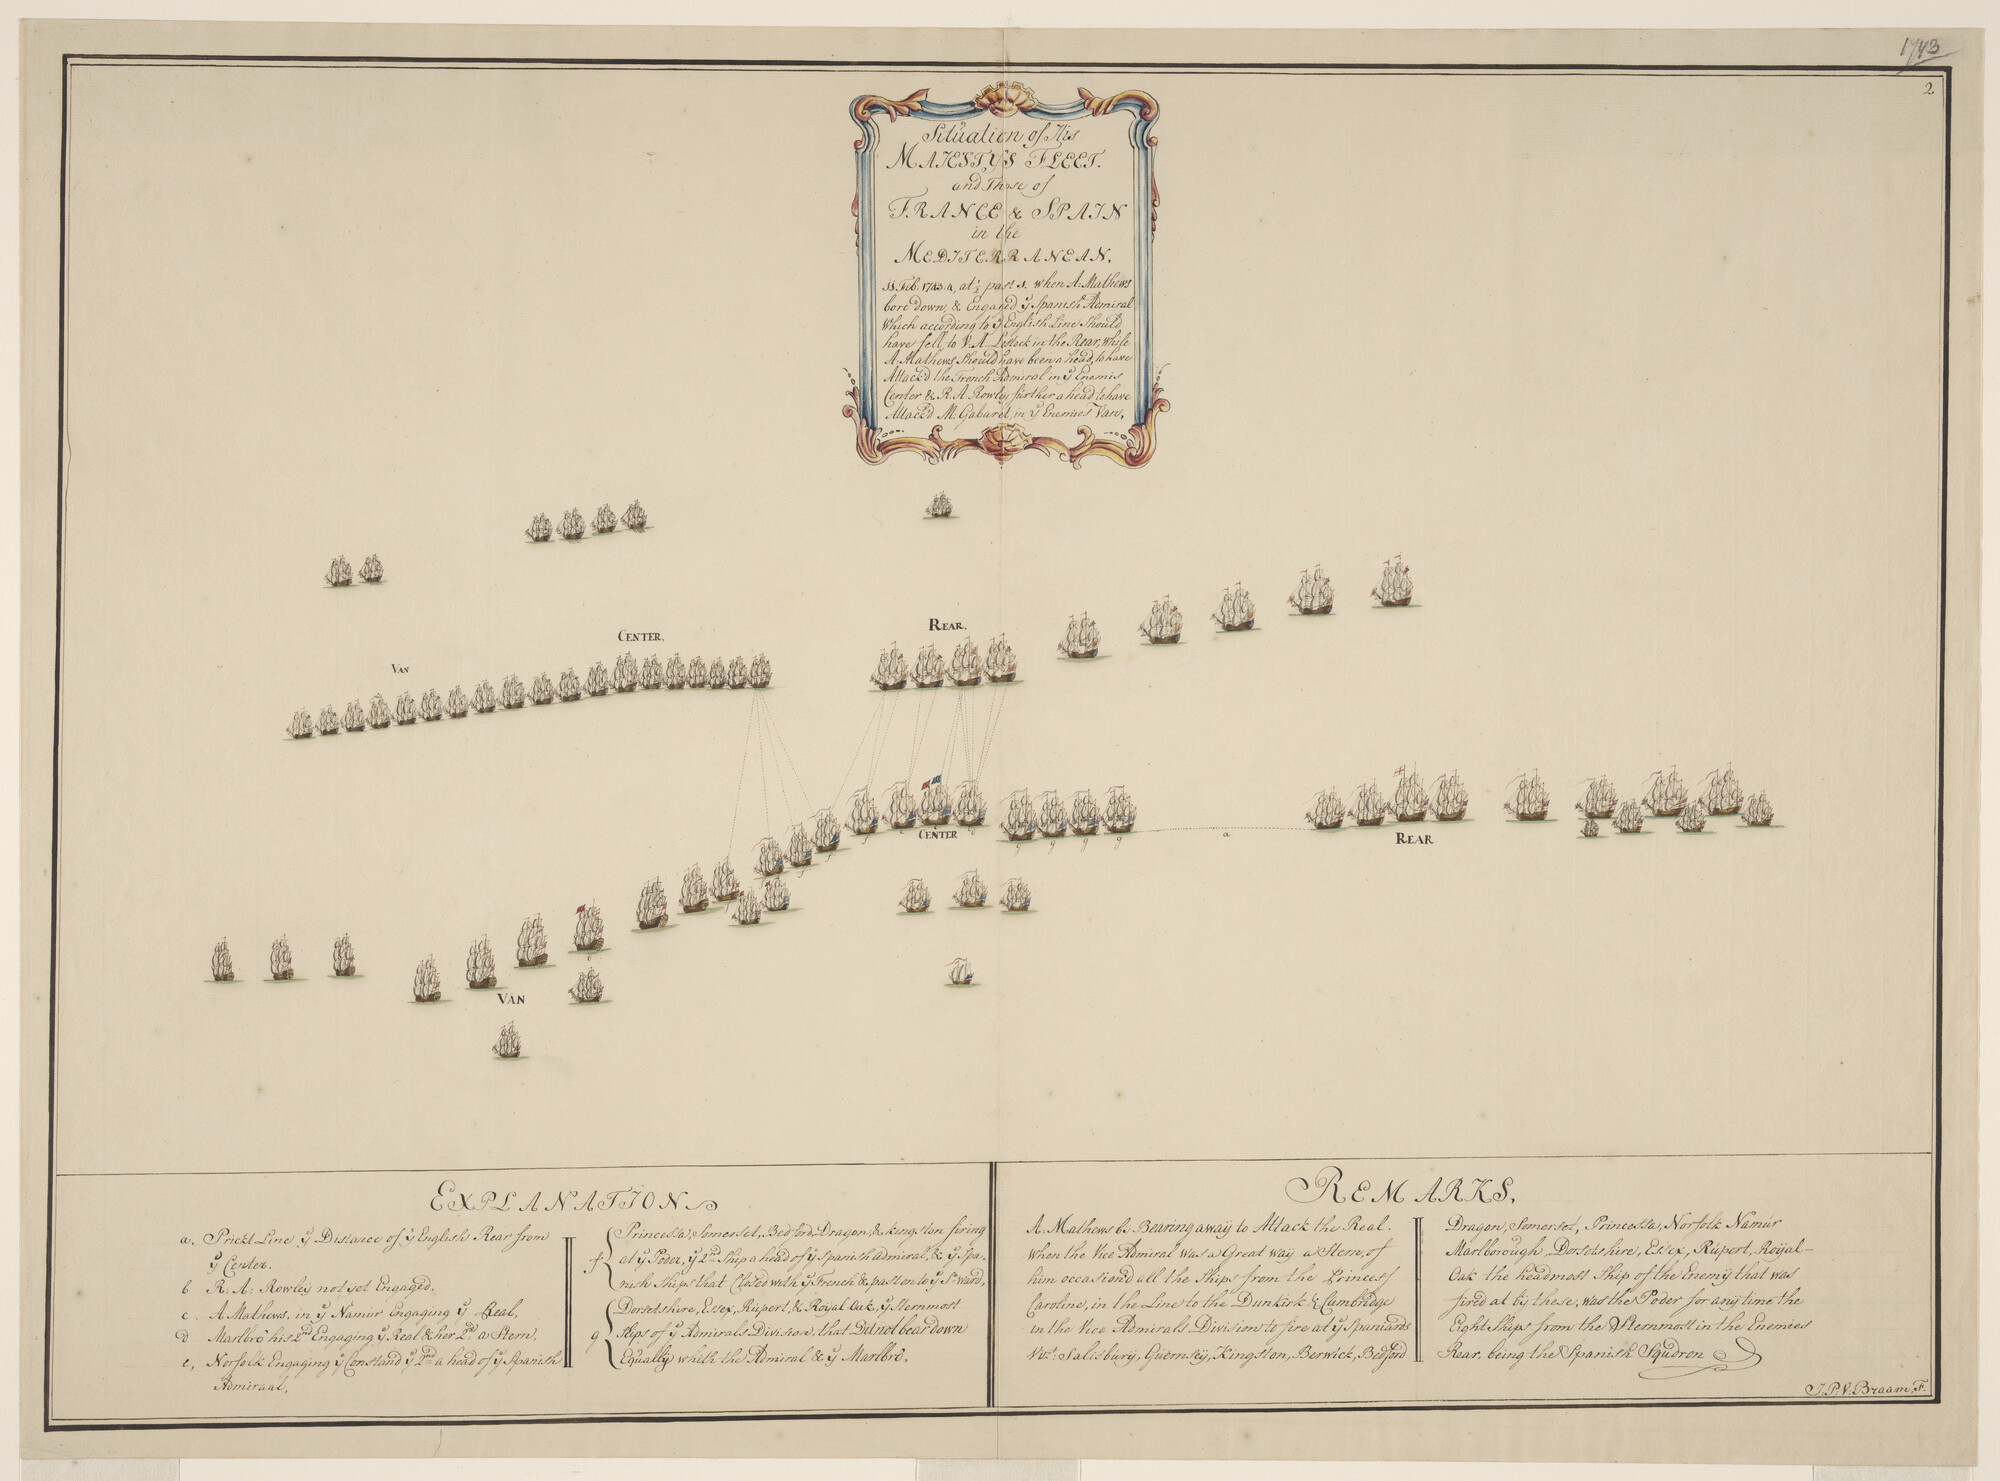 1743
2
Situation of His
MAJESTYS FLEET.
and Those of
FRANCE & SPAIN
in the
MEDITERRANEAN,
11 Feb. 1743/4, at ½ past 1. when A: Mathews
bore down, & Engaged ÿ Spanish Admiral
Which according to ÿ English Line Should
have fell to V: A. Lestock in the Rear, while
A: Mathews Should have been a head, to have
Attack'd the French Admiral in ÿ Enemis
Center & R. A. Rowley further a head to have
Attack'd M: Gabaret, in ÿ Enemies Van,
CENTER,
REAR,
VAN
CENTER
REAR
a
VAN
EXPLANATION
a, Prickt Line ÿ Distance of ÿ English Rear from
ÿ Center.
b R: A: Rowley not yet Engaged,
c, A Mathews, in ÿ Namur Engaging ÿ Real,
d Marlbrô his 2nd Engaging ÿ Real & her 2nd a Stern,
e, Norfolk Engaging ÿ Constand ÿ 2nd a head of ÿ Spanish
Admiraal,
f Princessa, Somerset, Bedford, Dragon, & Kingston firing
at ÿ Poder, ÿ 2nd Ship a head of ÿ Spanish Admiral, & ÿ Spa-
nish Ships that Closed with ÿ French & past on to ÿ Sº ward,
g Dorsetshire, Essex, Rupert, & Royal Oak, ÿ Sternmost
Ships of ÿ Admirals Division, that Did not bear down
Equally whith the Admiral & ÿ Marlbrô.
REMARKS,
A. Mathews by Bearing away to Attack the Real.
when the Vice Admiral was a Great way a Stern, of
him occasiond all the Ships from the Princess
Caroline, in the Line to the Dunkirk & Cambridge
in the Vice Admirals Division to fire at ÿ Spaniards
Vizt: Salisbury, Guernsey, Kingston, Berwick, Bedford
Dragon, Somerset, Princessa, Norfolk Namur
Marlborough, Dorsetshire, Essex, Rupert, Royal-
Oak the headmost Ship of the Enemy that was
fired at by these, was the Poder for any time the
Eight Ships from the Sternmost in the Enemies
Rear, being the Spanish Squdron
J. P. V. Braam, F.